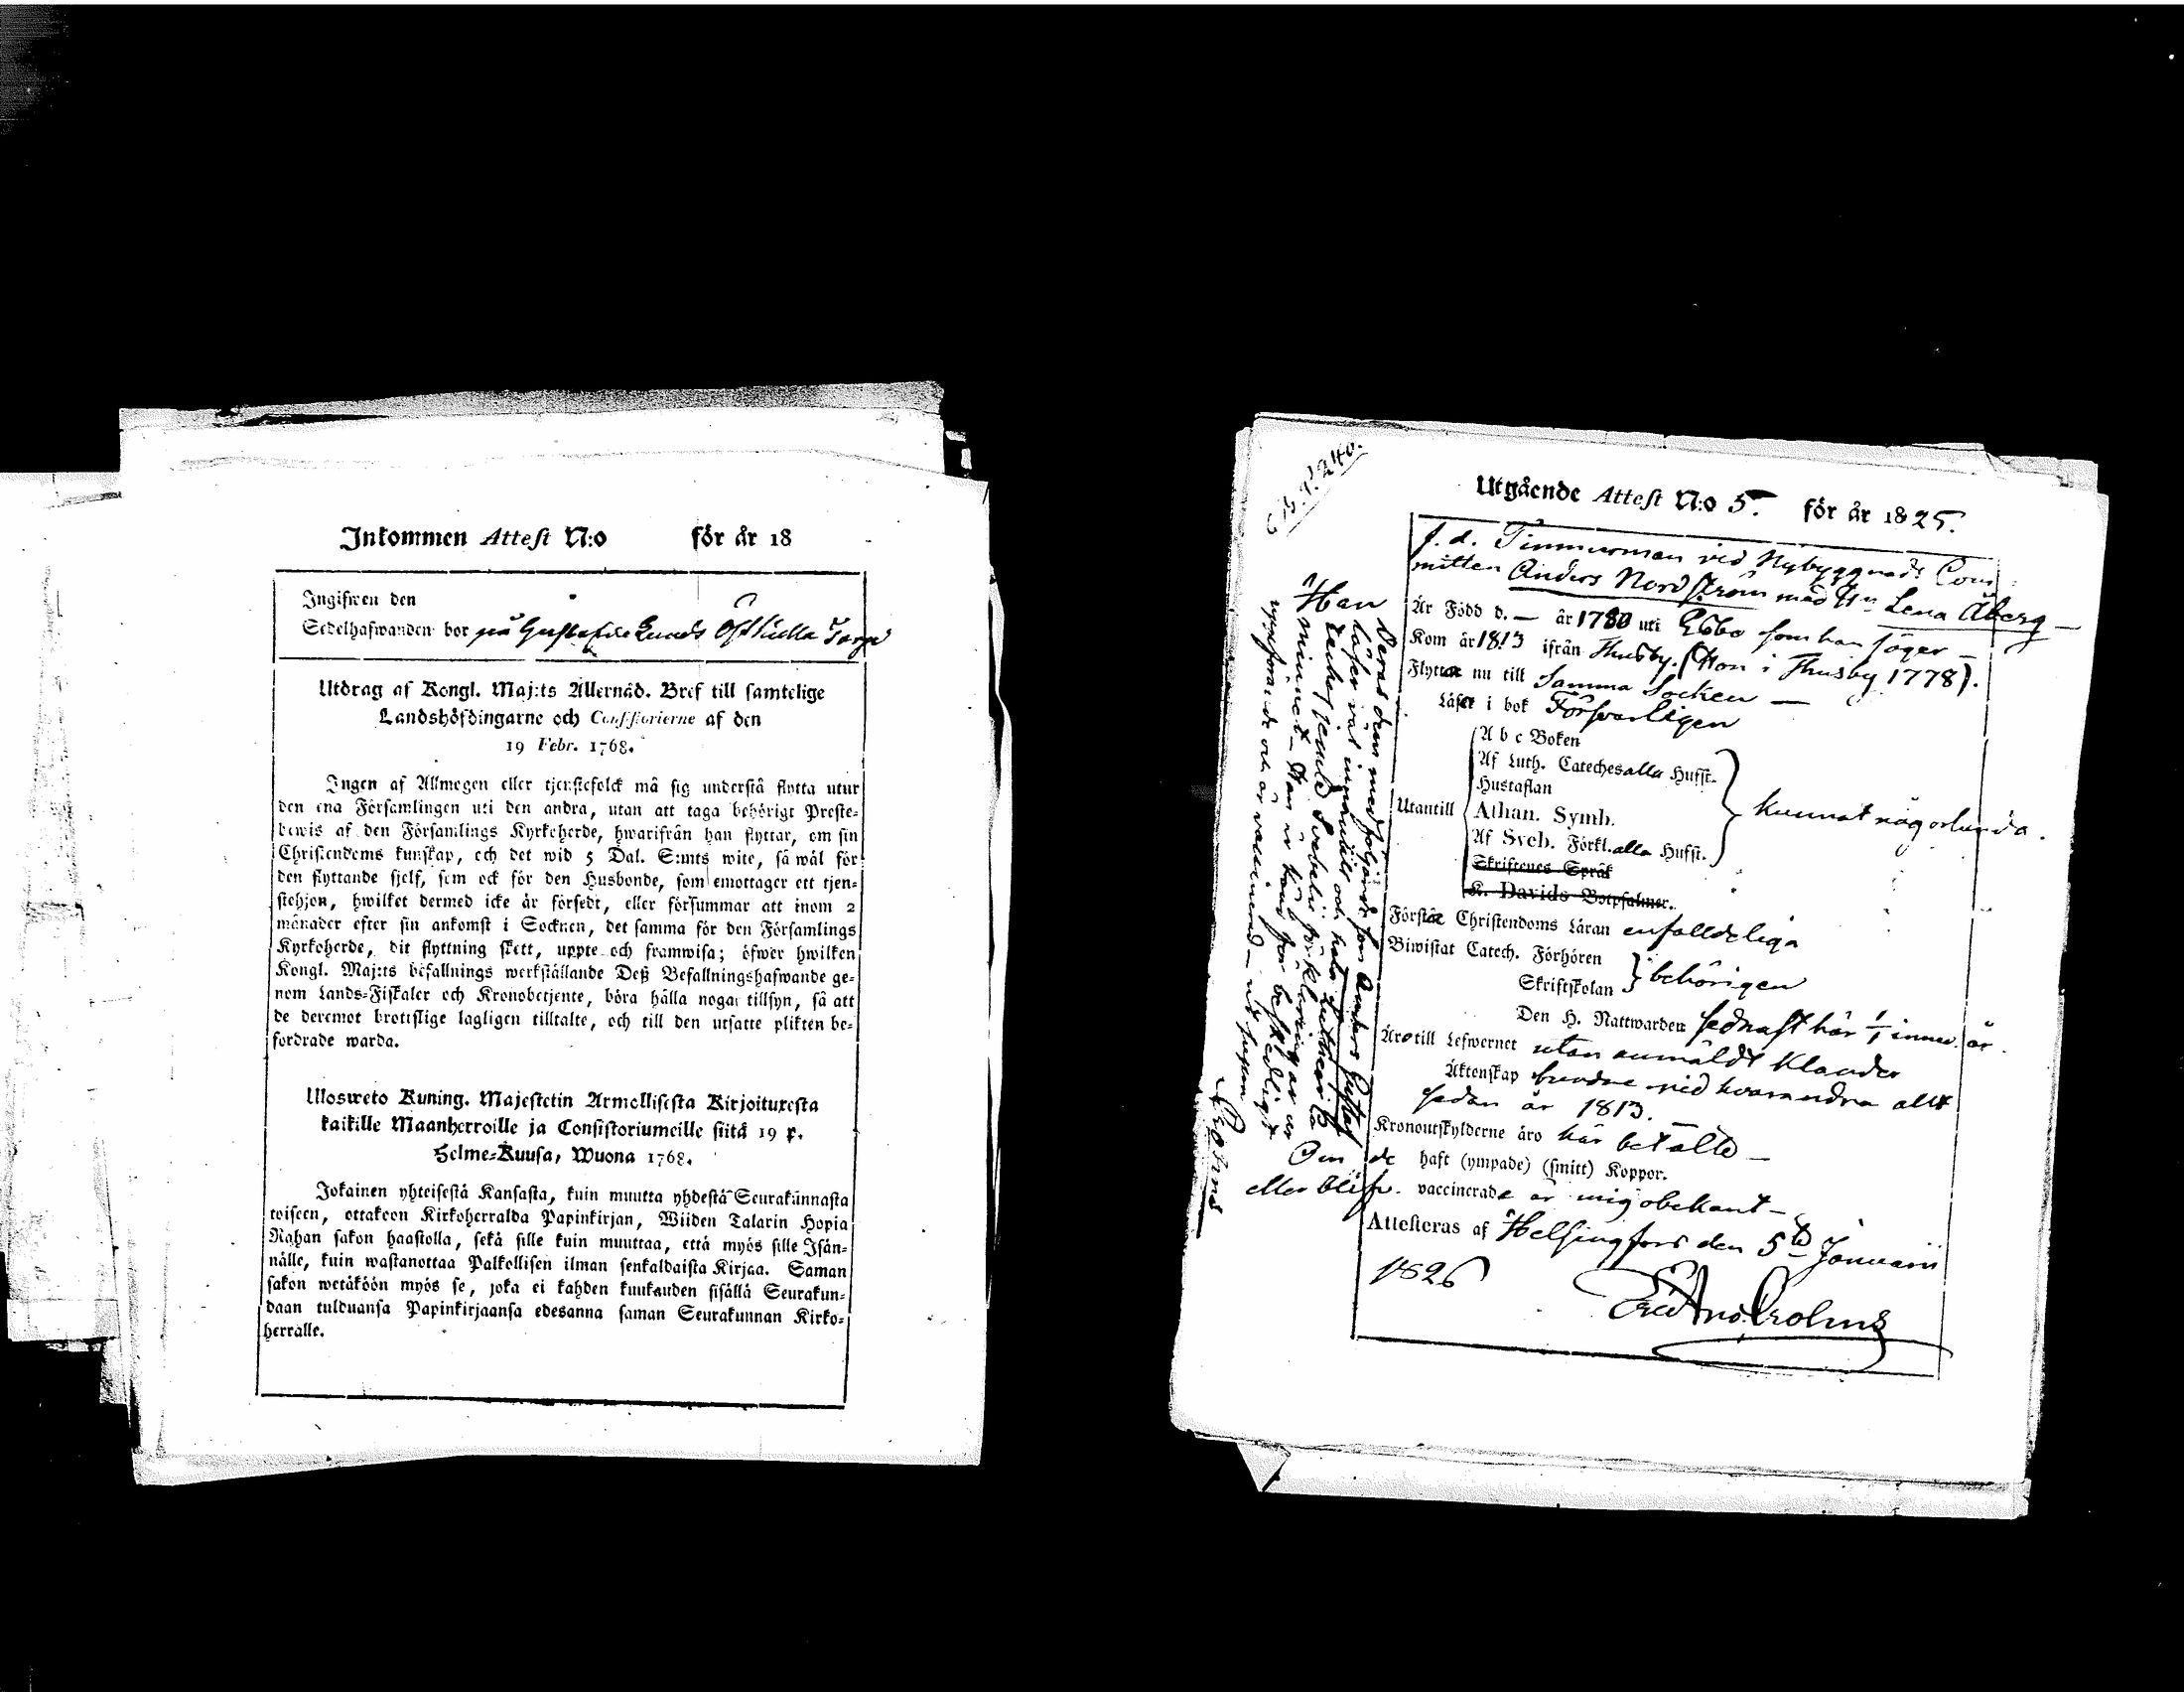 Inkommen Attest N:o för år 18
Ingifwen den
Sedelhafwanden bor på Gustafs Lunds Torp
Utdrag af Kongl. Maj:ts Allernåd. Bref till samtelige
Landshöfdingarne och Consistorierne af den
19 Febr. 1768.
Ingen af Allmogen eller tjenstefolck må sig understå flytta utur
den ena Församlingen uti den andra, utan att taga behörigt Preste-
bewis af den Församlings Kyrkoherde, hwarifrån han flyttar, om sin
Christendoms kunskap, och det wid 5 Dal. S:mts wite, så wäl för
den flyttande sjelf, som ock för den Husbonde, som emottager ett tjen-
stehjon, hwilket dermed icke är försedt, eller försummar att inom 2
månader efter sin ankomst i Socknen, det samma för den Församlings
Kyrkoherde, dit flyttning skett, uppte och framwisa; öfwer hwilken
Kongl. Maj:ts befallnings werkställande Deß Befallningshafwande ge-
nom Lands-Fiskaler och Kronobetjente, böra hålla noga tillsyn, så att
de deremot brottslige lagligen tilltalte, och till den utsatte plikten be-
fordrade warda.
Ulosweto Kuning. Majestetin Armollisesta Kirjoituxesta
kaikille Maanherroille ja Consistoriumeille siitä 19 p.
Helme-Kuusa, Wuona 1768.
Jokainen yhteisestä Kansasta, kuin muutta yhdestä Seurakunnasta
toiseen, ottakoon Kirkoherralda Papinkirjan, Wiiden Talarin Hopia
Rahan sakon haastolla, sekä sille kuin muuttaa, että myös sille Isän-
nälle, kuin wastanottaa Palkollisen ilman senkaldaista Kirjaa. Saman
sakon wetäköön myös se, joka ei kahden kuukauden sisällä Seurakun-
daan tulduansa Papinkirjaansa edesanna saman Seurakunnan Kirko-
herralle.
P. 240.
Utgående Attest N:o 5. för år 1825.
f.d. Timmerman vid Nybyggnads Com
mitten Anders Nordström med H:u Lena Åberg —
Är Född d. — år 1780 uti Esbo som han säger —
Kom år 1813 ifrån Thusby. (Hon i Thusby 1778).
Flyttar nu till Samma Socken —
Läser i bok Försvarligen
A b c Boken
Af Luth. Cateches alla Hufst.
Hustaflan
Utantill Athan. Symb. kunnat någorlunda.
Af Sveb. Förkl. alla Hufst.
Skriftenes Språk
K. Davids Botpsalmer.
Förstår Christendoms Läran enfalldeliga
Biwistat Catech. Förhören
Skriftskolan behörigen
Den H. Nattwarden sednast här 1/1 innev. år.
Äro till Lefwernet utan anmäldt klander
Äktenskap bundne vid hvarandra allt
sedan år 1813.
Kronoutskylderne äro här betalte —
Om de haft (ympade) (smitt) Koppor.
eller blifv. vaccinerade är mig obekant —
Attesteras af Helsingfors den 5te Januarii
1826
Crolund
Deras dem medföljande son Anders Gustaf
läser väl innantill och har Lutheri Ca
teches jemte Svebelii förklaringar i
minnet — Han är känd för beskedligt
uppförande och är vaccinerad —